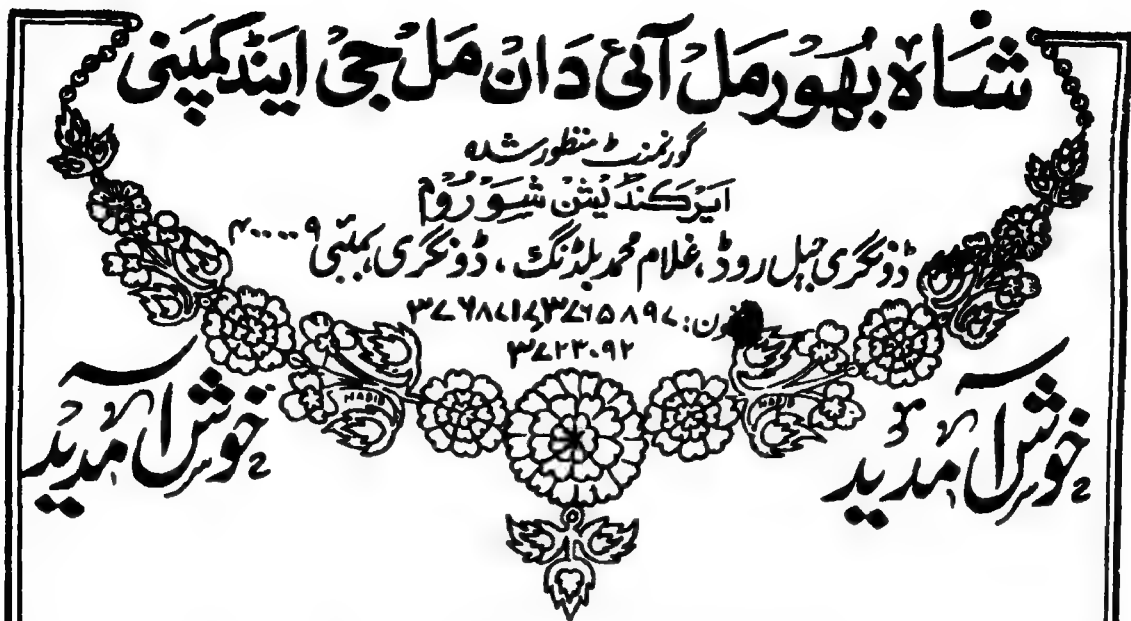 شاہ بھورمل آئی دان مل جی اینڈ کمپنی
گورنمنٹ منظور شدہ
ایرکنڈیشن شو روم
ڈونگری جیل روڈ، غلام محمد بلڈنگ، ڈونگری، بمبئی ۴۰۰۰۰۹
فون: ۳۷۶۵۸۹۷
۳۷۲۳۰۹۲
خوش آمدید
خوش آمدید
HABIB
HABIB